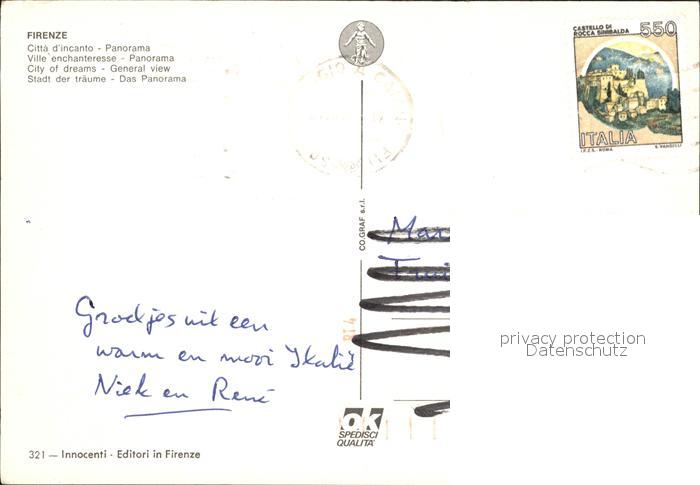 FIRENZE
Città d'incanto - Panorama
Ville enchanteresse - Panorama
City of dreams - General view
Stadt der träume - Das Panorama
CASTELLO DI
ROCCA SINIBALDA
550
ITALIA
I.P.Z.S. - ROMA
E. VANGELLI
CO.GRAF s.r.l.
Mar
Groetjes uit een
warm en mooi Italië
Niek en René
PT4
privacy protection
Datenschutz
OK
SPEDISCI
QUALITA'
321 — Innocenti - Editori in Firenze